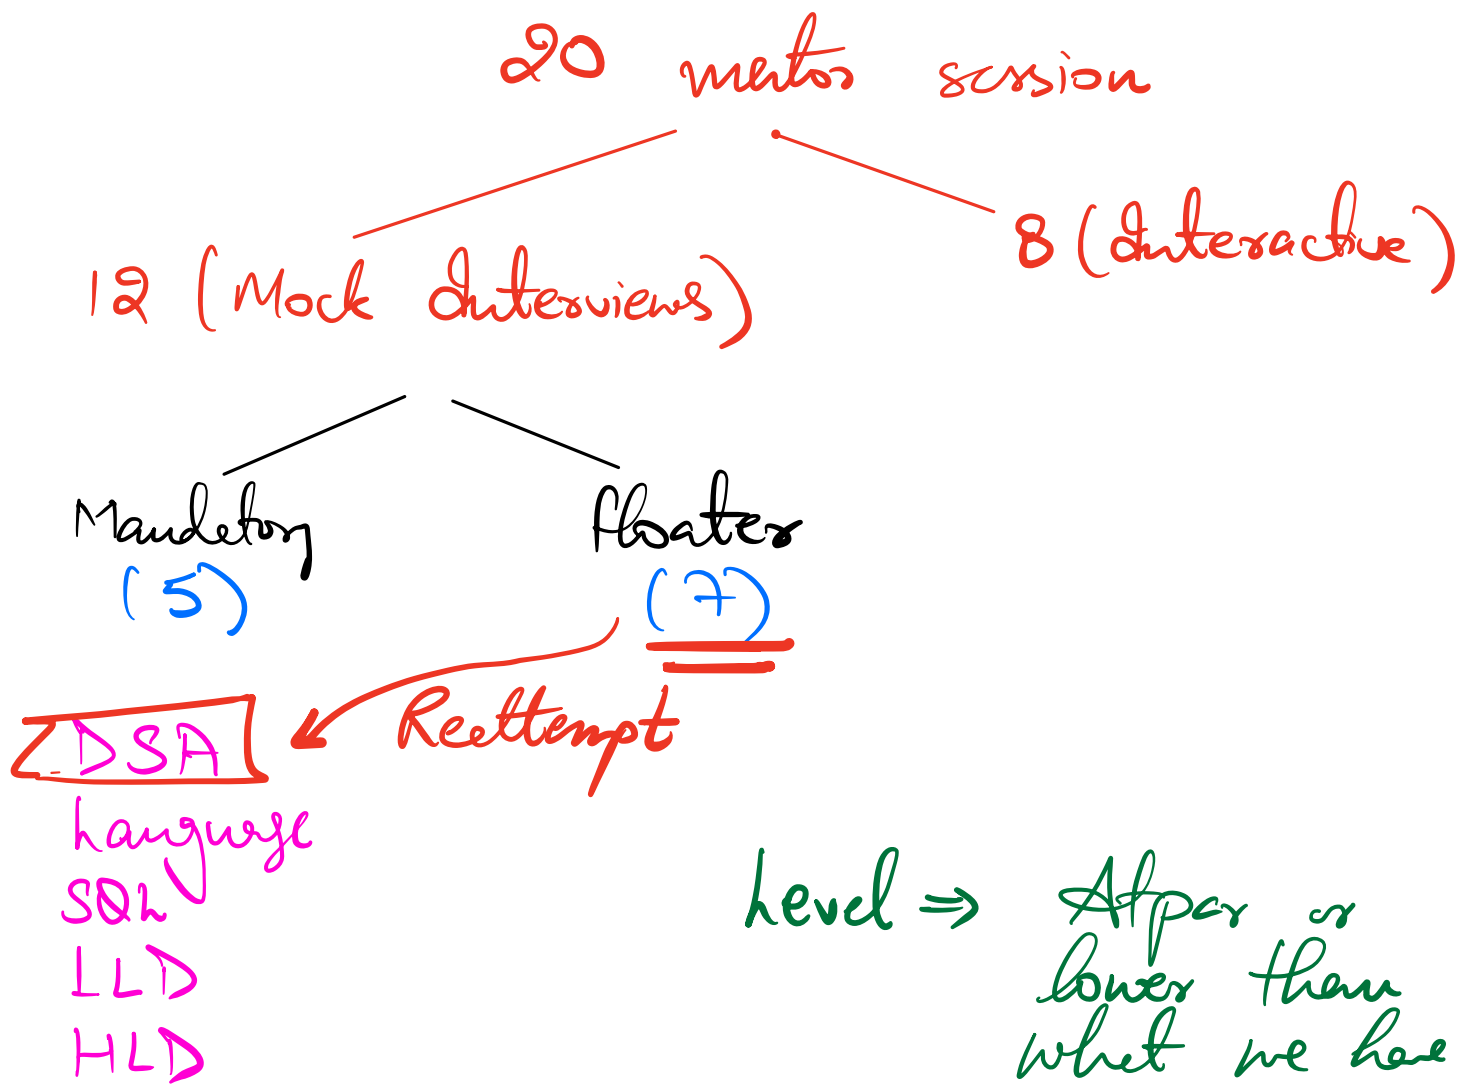 20 mentor session
8 (Interactive)
12 (Mock Interviews)
Mandatory
(5)
Floater
(7)
Reattempt
DSA
Language
SQL
LLD
HLD
Level ⇒ At par or
lower than
what we have